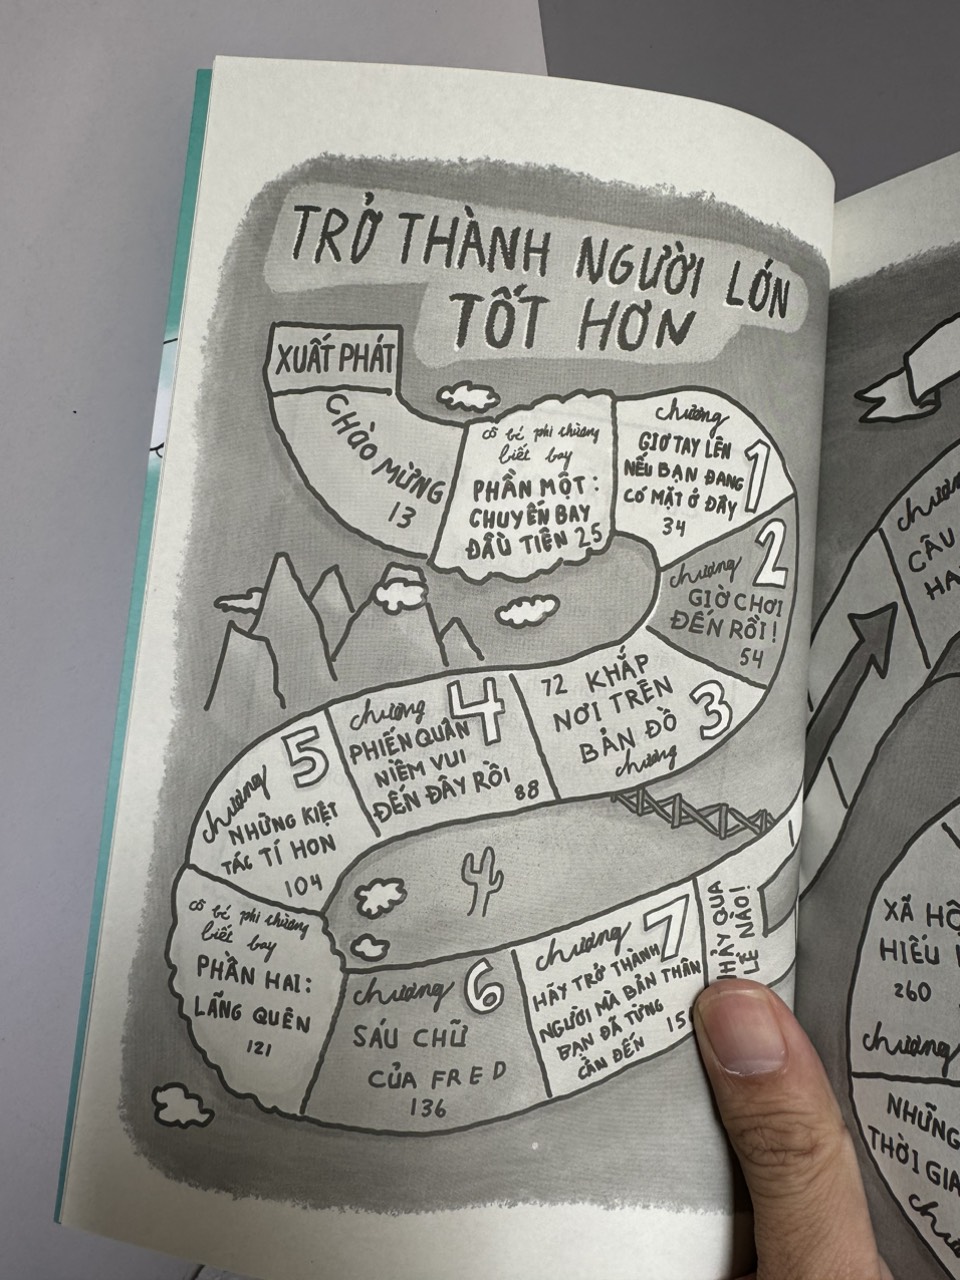 TRỞ THÀNH NGƯỜI LỚN
TỐT HƠN
XUẤT PHÁT
CHÀO MỪNG
13
cô bé phi thường
biết bay
PHẦN MỘT:
CHUYẾN BAY
ĐẦU TIÊN 25
chương 1
GIƠ TAY LÊN
NẾU BẠN ĐANG
CÓ MẶT Ở ĐÂY
34
chương 2
GIỜ CHƠI
ĐẾN RỒI!
54
72 KHẮP
NƠI TRÊN
BẢN ĐỒ
chương 3
chương 4
PHIẾN QUÂN
NIỀM VUI
ĐẾN ĐÂY RỒI
88
chương 5
NHỮNG KIỆT
TÁC TÍ HON
104
cô bé phi thường
biết bay
PHẦN HAI:
LÃNG QUÊN
121
chương 6
SÁU CHỮ
CỦA FRED
136
chương 7
HÃY TRỞ THÀNH
NGƯỜI MÀ BẢN THÂN
BẠN ĐÃ TỪNG
CẦN ĐẾN
QUA
NÀO!
chương
CÂU
XÃ
HIỂU
260
chương
NHỮNG
THỜI